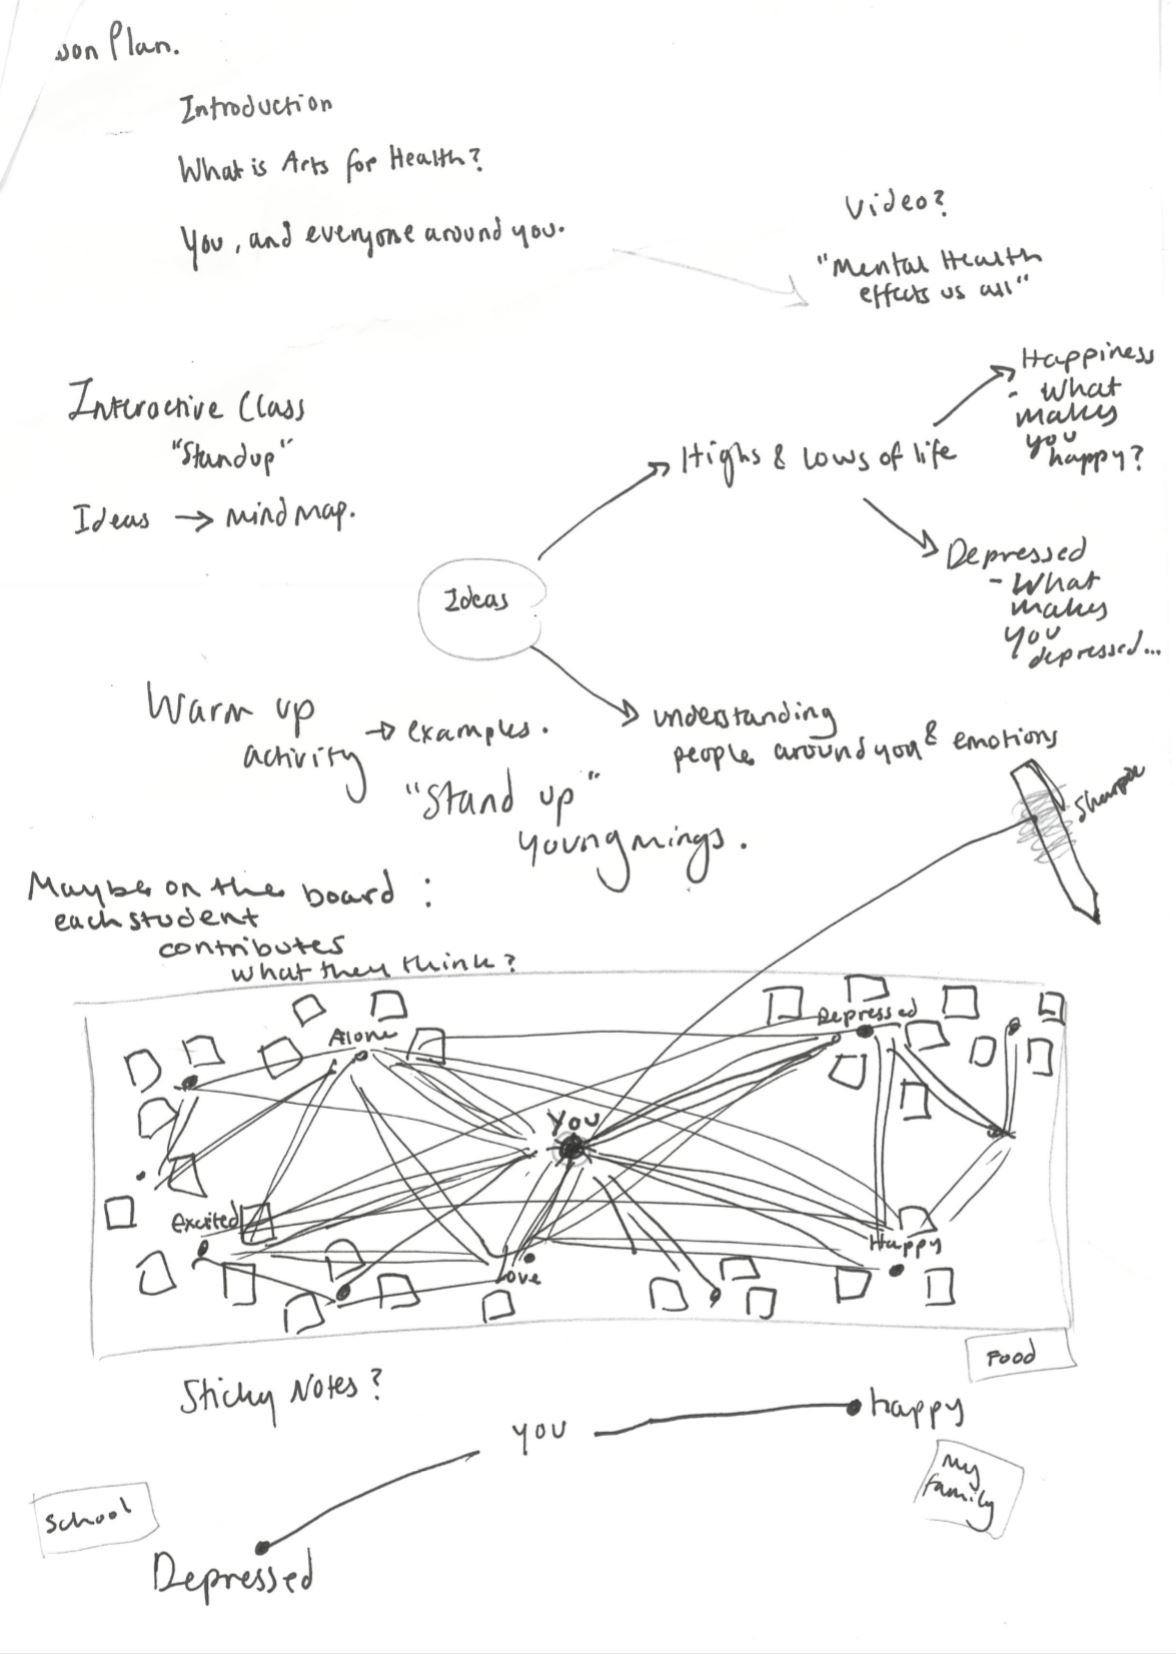 son Plan.
Introduction
What is Arts for Health?
You, and everyone around you.
Video?
"Mental Health
effects us all"
Interactive Class
"Standup"
Ideas → mind map.
Ideas
Highs & Lows of life
Happiness
- What
makes
you
happy?
Depressed
- What
makes
you
depressed...
understanding
people around you & emotions
Warm up
activity → examples.
"Stand up"
youngmings.
Sharpie
Maybe on the board :
each student
contributes
what they think?
Alone
Depressed
You
Excited
Love
Happy
Sticky Notes?
Food
you
happy
My
family
School
Depressed